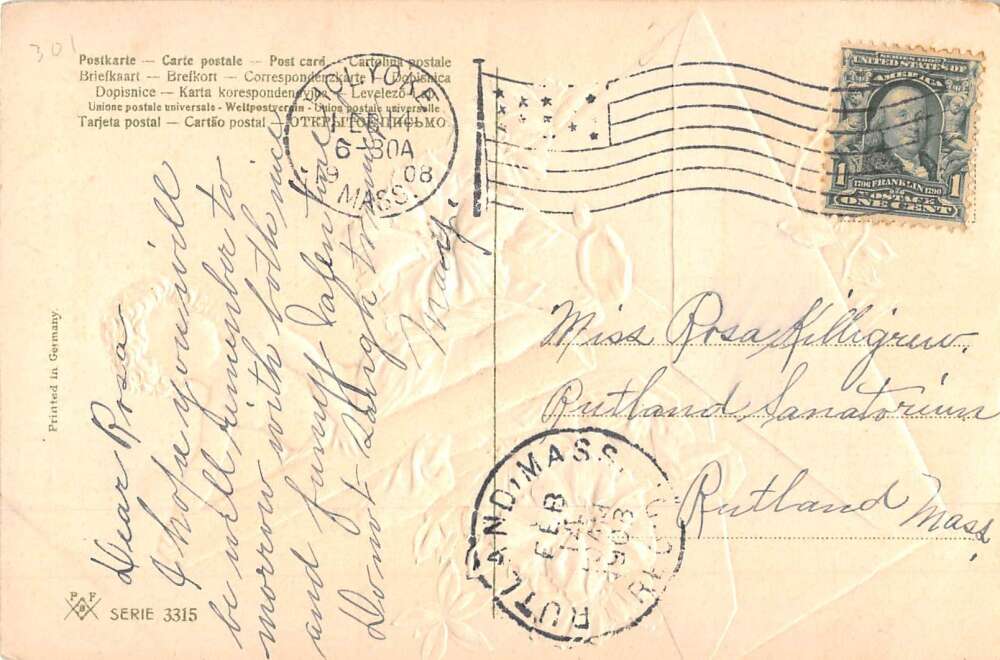 301
Postkarte — Carte postale — Post card — Cartolina postale
Briefkaart — Brefkort — Correspondenzkarte — Dopisnica
Dopisnice — Karta korespondencyjna — Levelező-Lap
Unione postale universale - Weltpostverein - Union postale universelle
Tarjeta postal — Cartão postal — ОТКРЫТОЕ ПИСЬМО
FEB
6-30A
08
MASS.
UNITED STATES OF
AMERICA
1 1706 FRANKLIN 1790 1
POSTAGE
ONE CENT
Dear Rosa
I hope you will
be well remember to
morrow with both nice
and funny Valentine
Do not laugh to much
Mary.
Miss Rosa Killigrew.
Rutland Sanatorium
Rutland Mass,
RUTLAND, MASS.
FEB
1908
REC'D
Printed in Germany.
P F B
SERIE 3315